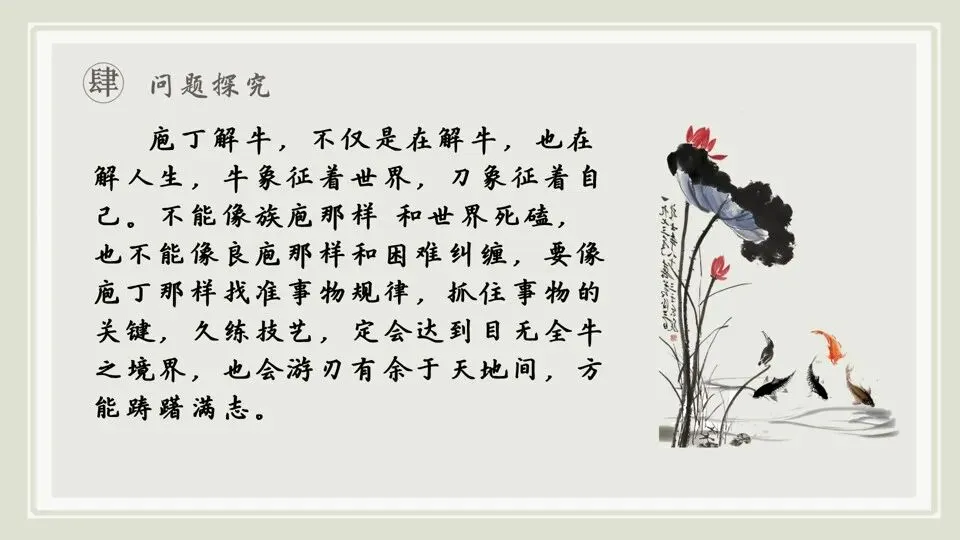 肆 问题探究
庖丁解牛，不仅是在解牛，也在
解人生，牛象征着世界，刀象征着自
己。不能像族庖那样 和世界死磕，
也不能像良庖那样和困难纠缠，要像
庖丁那样找准事物规律，抓住事物的
关键，久练技艺，定会达到目无全牛
之境界，也会游刃有余于天地间，方
能踌躇满志。